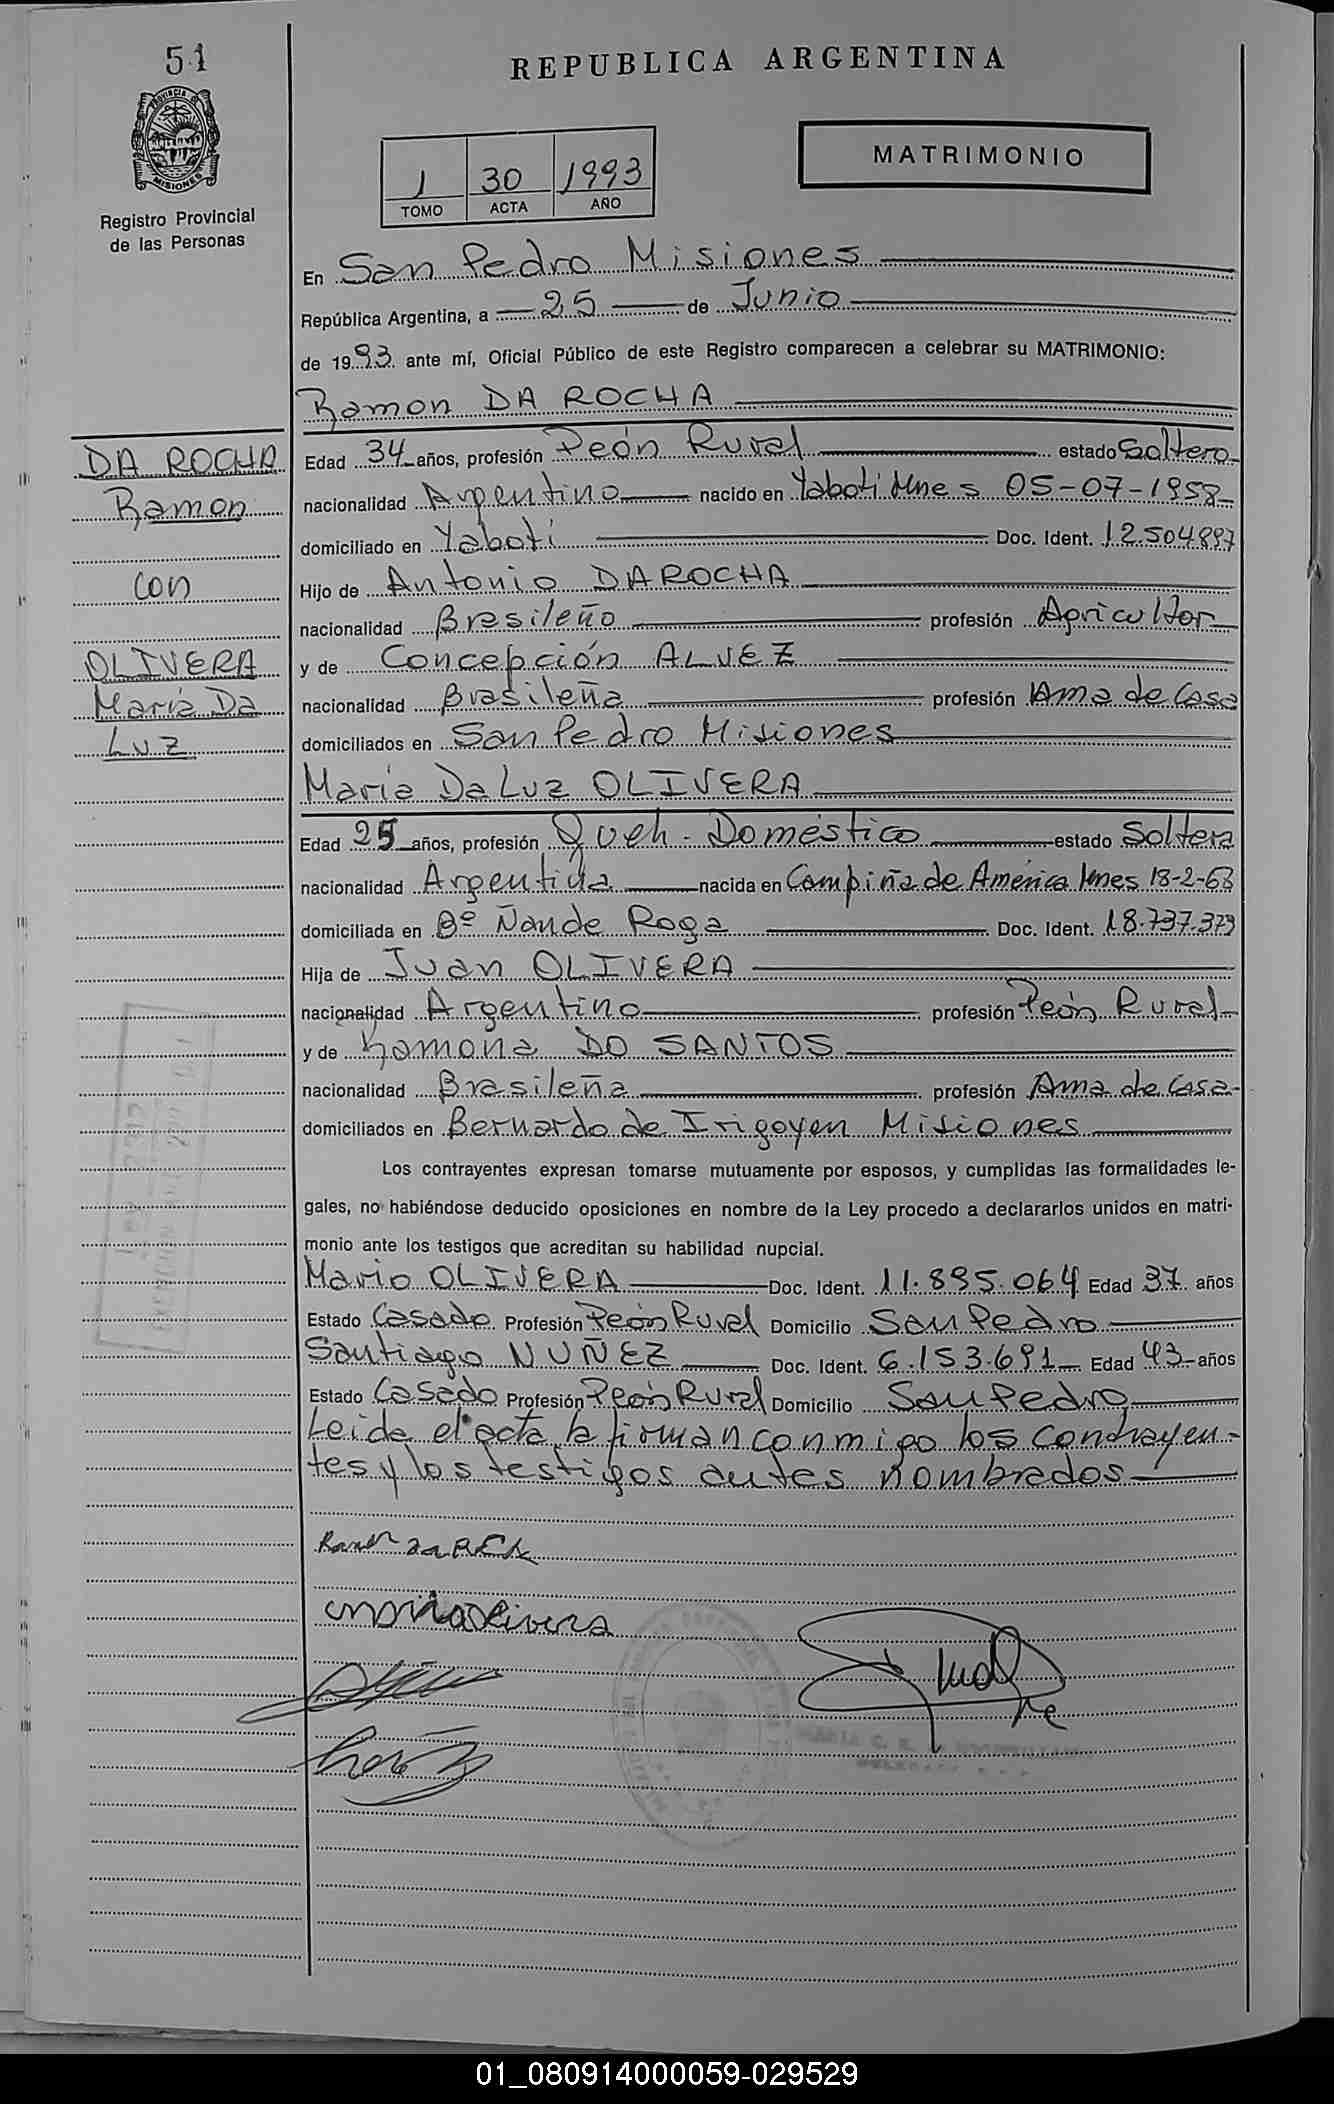 51
REPUBLICA ARGENTINA
PROVINCIA DE
MISIONES
Registro Provincial
de las Personas
1 30 1993
TOMO ACTA AÑO
MATRIMONIO
En San Pedro Misiones
República Argentina, a 25 de Junio
de 1993 ante mí, Oficial Público de este Registro comparecen a celebrar su MATRIMONIO:
Ramon DA ROCHA
DA ROCHA
Ramon
con
OLIVERA
María Da
Luz
Edad 34 años, profesión Peón Rural estado Soltero
nacionalidad Argentino nacido en Yaboti Mnes 05-07-1958
domiciliado en Yaboti Doc. Ident. 12.504.897
Hijo de Antonio DAROCHA
nacionalidad Brasileño profesión Agricultor
y de Concepción ALVEZ
nacionalidad Brasileña profesión Ama de Casa
domiciliados en San Pedro Misiones
María Da Luz OLIVERA
Edad 25 años, profesión Queh. Doméstico estado Soltera
nacionalidad Argentina nacida en Campiña de América Mnes 18-2-68
domiciliada en Bº Ñande Roga Doc. Ident. 18.737.379
Hija de Juan OLIVERA
nacionalidad Argentino profesión Peón Rural
y de Ramona DO SANTOS
nacionalidad Brasileña profesión Ama de Casa
domiciliados en Bernardo de Irigoyen Misiones
Los contrayentes expresan tomarse mutuamente por esposos, y cumplidas las formalidades le-
gales, no habiéndose deducido oposiciones en nombre de la Ley procedo a declararlos unidos en matri-
monio ante los testigos que acreditan su habilidad nupcial.
Mario OLIVERA Doc. Ident. 11.895.064 Edad 37 años
Estado Casado Profesión Peón Rural Domicilio San Pedro
Santiago NUÑEZ Doc. Ident. 6.153.691 Edad 43 años
Estado Casado Profesión Peón Rural Domicilio San Pedro
Leida el acta, la firman conmigo los contrayen-
tes y los testigos antes nombrados
01_080914000059-029529